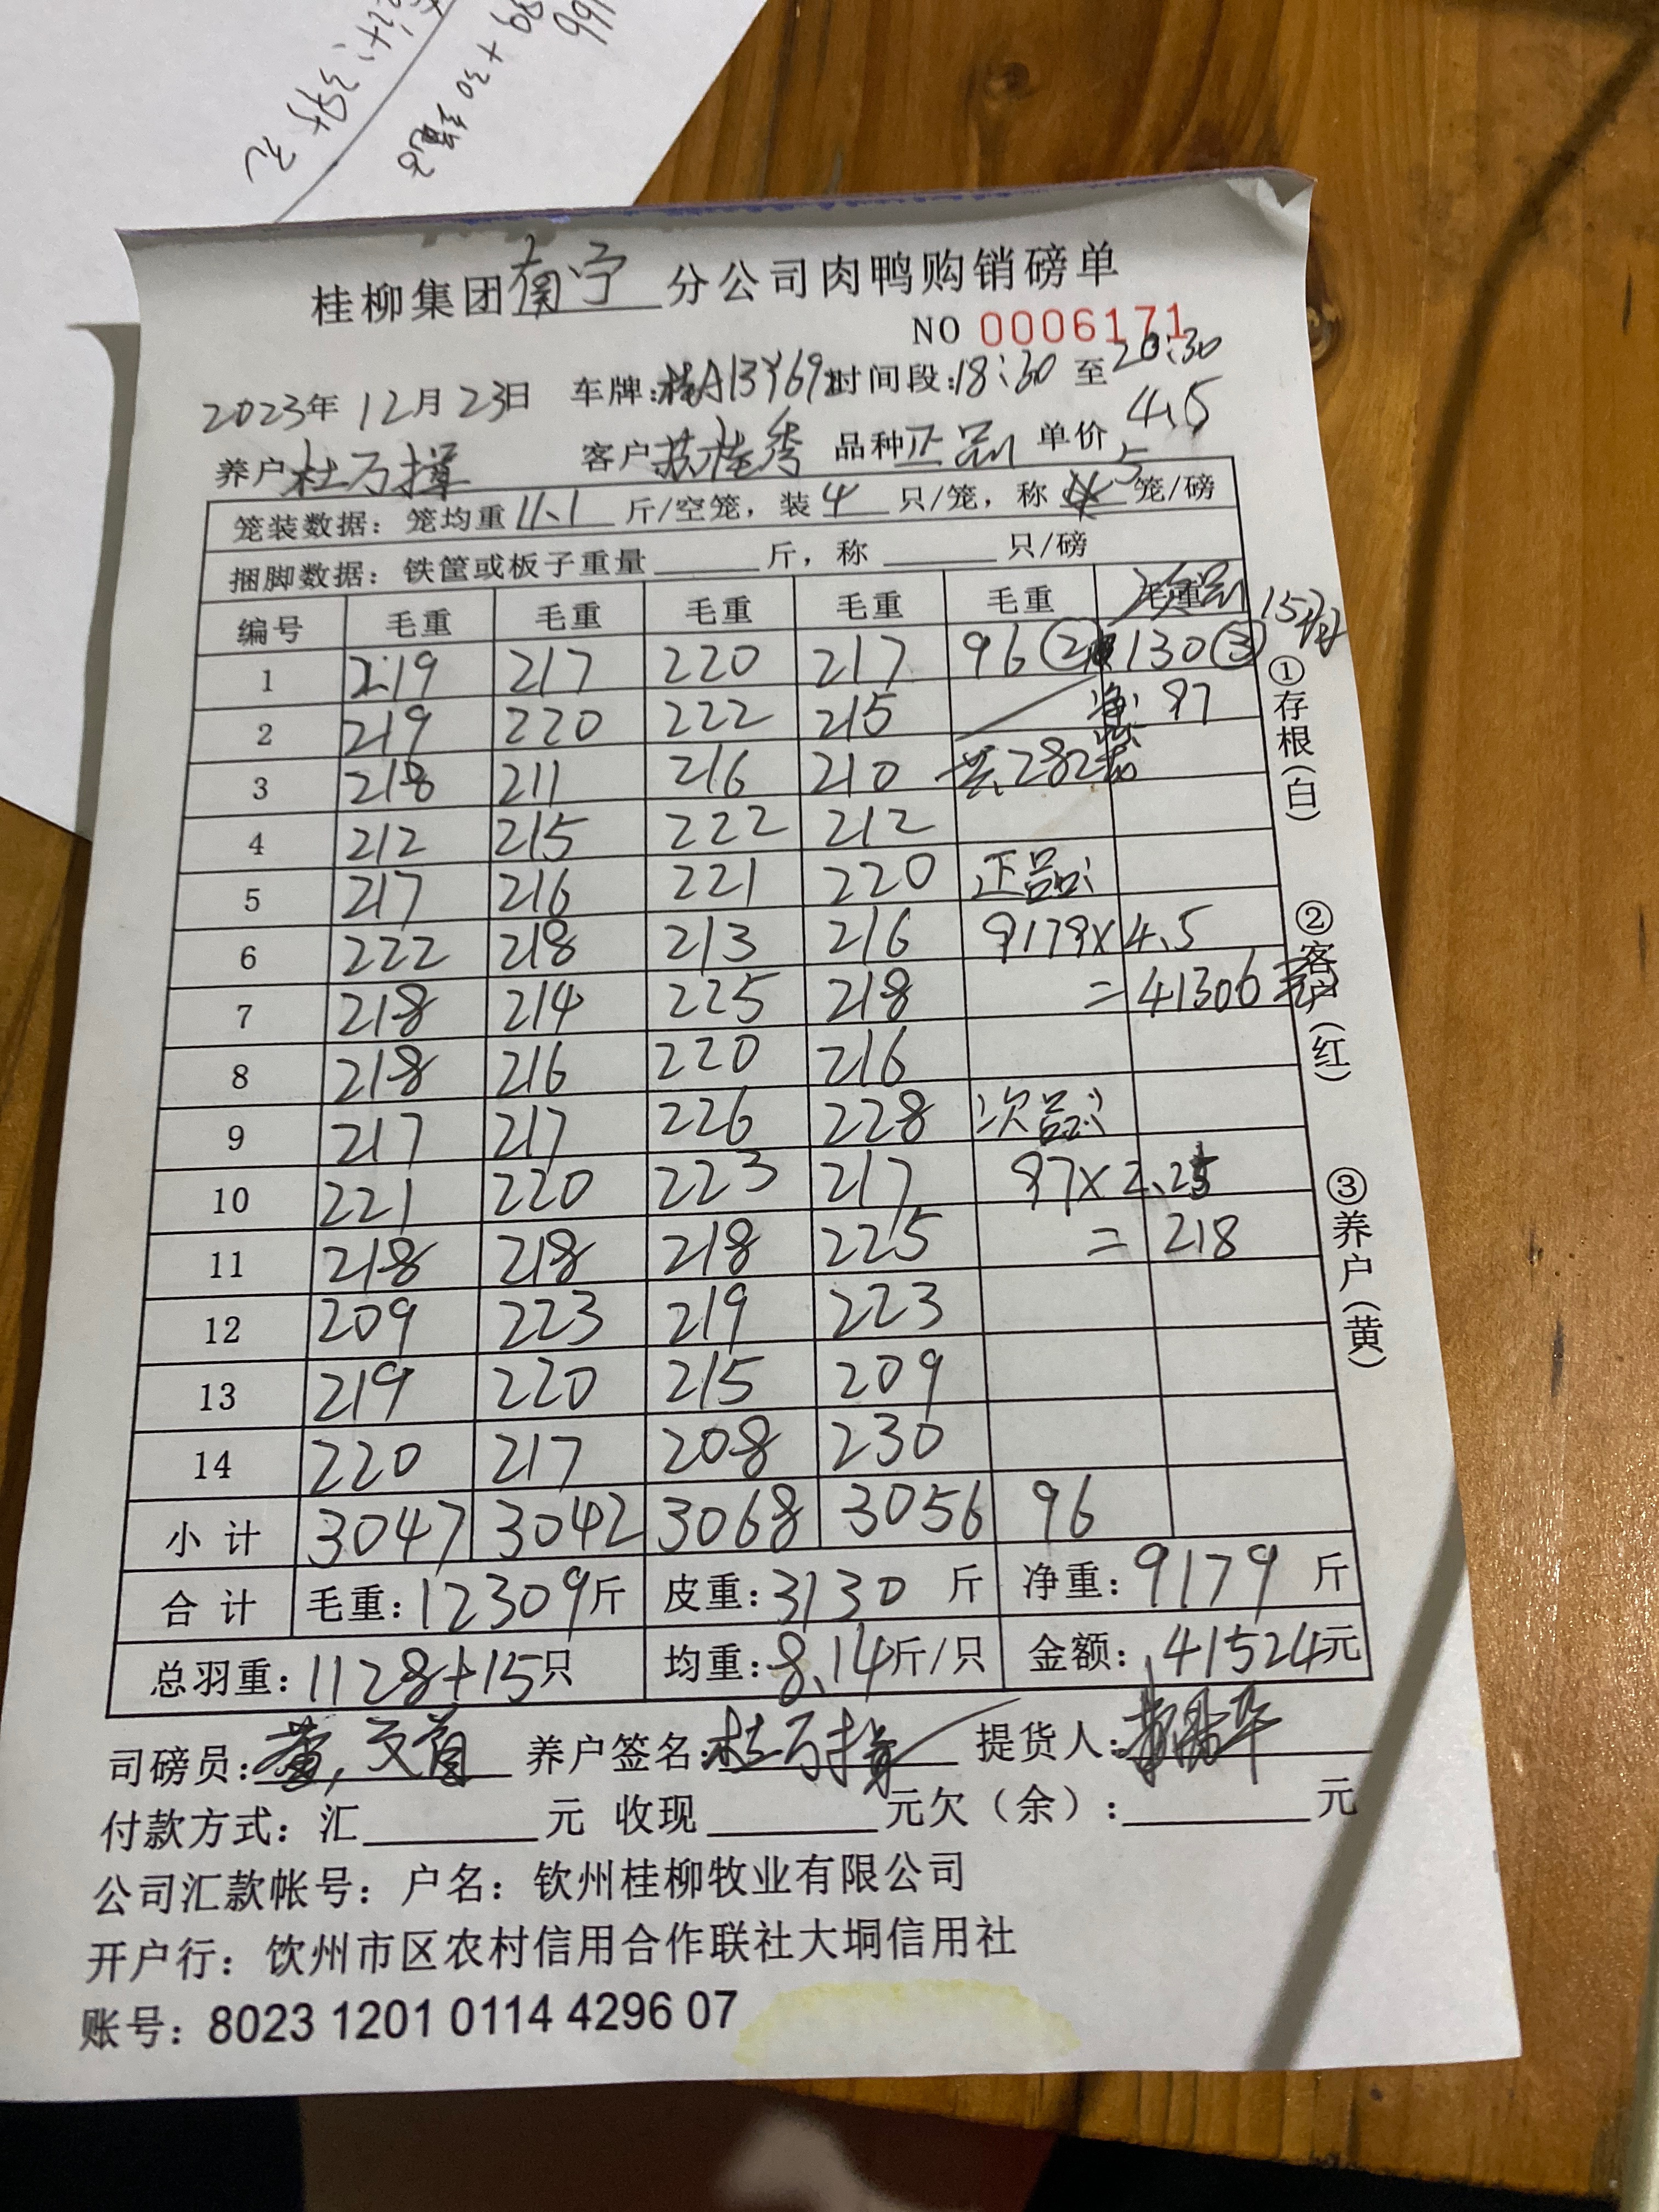 桂柳集团南宁分公司肉鸭购销磅单
NO 0006171
2023年12月23日 车牌:桂A13Y69 时间段:18:30 至 20:30
养户 杜万 客户 扶桂秀 品种 正品 单价 4.5
笼装数据: 笼均重 11.1 斤/空笼, 装 4 只/笼, 称 5 笼/磅
捆脚数据: 铁筐或板子重量 斤, 称 只/磅
编号 毛重 毛重 毛重 毛重 毛重 次品 15只
1 219 217 220 217 96② 130③
2 219 220 222 215 净: 97
3 218 211 216 210 共282笼
4 212 215 222 212
5 217 216 221 220 正品:
6 222 218 213 216 9179×4.5
7 218 214 225 218 =41306元
8 218 216 220 216
9 217 217 226 228 次品:
10 221 220 223 217 97×2.25
11 218 218 218 225 =218
12 209 223 219 223
13 219 220 215 209
14 220 217 208 230
小计 3047 3042 3068 3056 96
合计 毛重:12309斤 皮重:3130 斤 净重:9179 斤
总羽重:1128+15只 均重:8.14斤/只 金额:41524元
司磅员: 养户签名:杜万 提货人:
付款方式: 汇 元 收现 元欠(余): 元
公司汇款帐号: 户名: 钦州桂柳牧业有限公司
开户行: 饮州市区农村信用合作联社大垌信用社
账号: 8023 1201 0114 4296 07
①存根(白)
②客户(红)
③养户(黄)